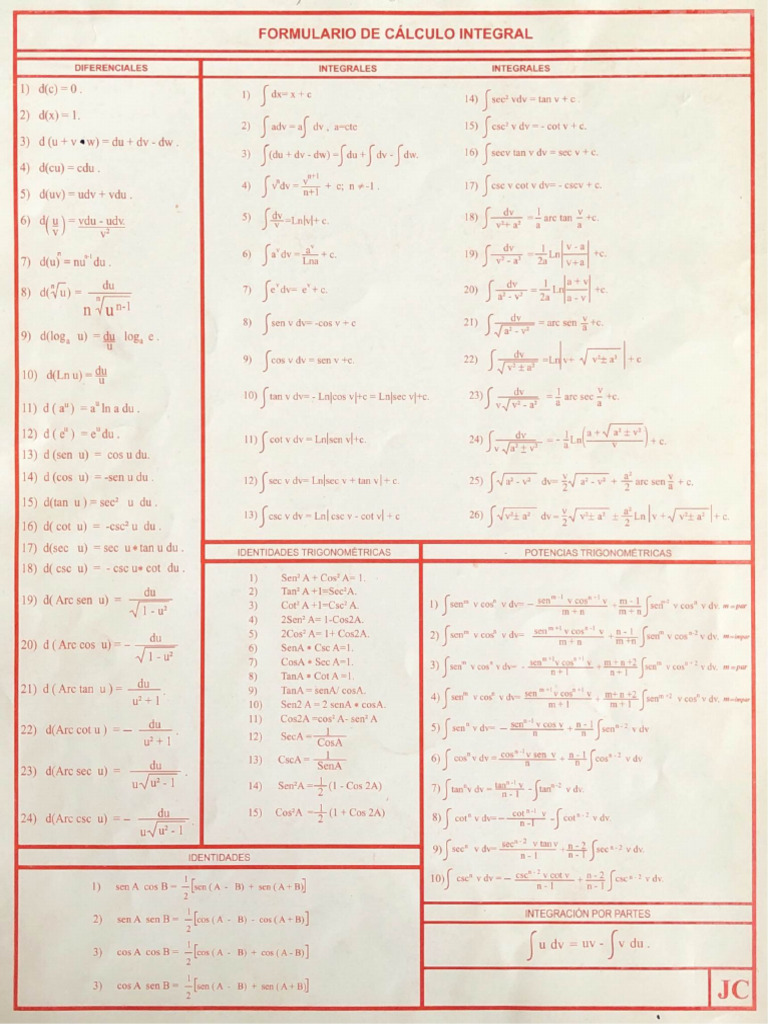 FORMULARIO DE CÁLCULO INTEGRAL
DIFERENCIALES
1) d(c) = 0 .
2) d(x) = 1.
3) d (u + v • w) = du + dv - dw .
4) d(cu) = cdu .
5) d(uv) = udv + vdu .
6) d(u/v) = vdu - udv. / v²
7) d(u)ⁿ = nuⁿ⁻¹ du .
8) d(ⁿ√u) = du / n ⁿ√uⁿ⁻¹
9) d(logₐ u) = du/u logₐ e .
10) d(Ln u) = du/u
11) d ( aᵘ ) = aᵘ ln a du .
12) d ( eᵘ ) = eᵘ du .
13) d (sen u) = cos u du.
14) d (cos u) = -sen u du .
15) d(tan u ) = sec² u du .
16) d( cot u) = -csc² u du .
17) d(sec u) = sec u • tan u du .
18) d( csc u) = - csc u • cot du .
19) d( Arc sen u) = du / √1 - u²
20) d ( Arc cos u) = – du / √1 - u²
21) d ( Arc tan u ) = du / u² + 1
22) d(Arc cot u ) = – du / u² + 1
23) d(Arc sec u) = du / u√u² - 1
24) d(Arc csc u) = – du / u√u² - 1
INTEGRALES
1) ∫ dx= x + c
2) ∫ adv = a∫ dv , a=ctc
3) ∫ (du + dv - dw) = ∫ du + ∫ dv - ∫ dw.
4) ∫ vⁿdv = vⁿ⁺¹/n+1 + c; n ≠ -1 .
5) ∫ dv/v =Ln|v|+ c.
6) ∫ aᵛ dv = aᵛ/Lna + c.
7) ∫ eᵛ dv= eᵛ + c.
8) ∫ sen v dv= -cos v + c
9) ∫ cos v dv = sen v +c.
10) ∫ tan v dv= - Ln|cos v|+c = Ln|sec v|+c.
11) ∫ cot v dv= Ln|sen v|+c.
12) ∫ sec v dv= Ln|sec v + tan v| + c.
13) ∫ csc v dv = Ln| csc v - cot v| + c
INTEGRALES
14) ∫ sec² vdv = tan v + c .
15) ∫ csc² v dv = - cot v + c.
16) ∫ secv tan v dv = sec v + c.
17) ∫ csc v cot v dv= - cscv + c.
18) ∫ dv/v²+ a² = 1/a arc tan v/a +c.
19) ∫ dv/v² - a² = 1/2a Ln|v - a/v+a| +c.
20) ∫ dv/a² - v² = 1/2a Ln|a + v/a - v| +c.
21) ∫ dv/√a² - v² = arc sen v/a +c.
22) ∫ dv/√v² ± a² =Ln|v+ √v²± a²| + c
23) ∫ dv/v√v² - a² = 1/a arc sec v/a +c.
24) ∫ dv/v√a² ± v² = - 1/a Ln(a + √a² ± v²/v) + c.
25) ∫√a² - v² dv= v/2 √a² - v² + a²/2 arc sen v/a + c.
26) ∫√v²± a² dv = v/2 √v²± a² ± a²/2 Ln|v + √v²± a²| + c.
IDENTIDADES TRIGONOMÉTRICAS
1) Sen² A + Cos² A= 1.
2) Tan² A +1=Sec² A.
3) Cot² A +1=Csc² A.
4) 2Sen² A= 1-Cos2A.
5) 2Cos² A= 1+ Cos2A.
6) SenA • Csc A=1.
7) CosA • Sec A=1.
8) TanA • Cot A =1.
9) TanA = senA/ cosA.
10) Sen2 A = 2 senA • cosA.
11) Cos2A =cos² A- sen² A
12) SecA = 1/CosA
13) CscA = 1/SenA
14) Sen²A = 1/2 (1 - Cos 2A)
15) Cos²A = 1/2 (1 + Cos 2A)
POTENCIAS TRIGONOMÉTRICAS
1) ∫ senᵐ v cosⁿ v dv= – senᵐ⁻¹ v cosⁿ⁺¹ v / m + n + m - 1/m + n ∫ v cosⁿ v dv. m = par
2) ∫ senᵐ v cosⁿ v dv= senᵐ⁺¹ v cosⁿ⁻¹ v / m + n + n - 1/m +n ∫ senᵐ v cosⁿ⁻² v dv. m =impar
3) ∫ senᵐ v cosⁿ v dv= - senᵐ⁺¹ v cosⁿ⁺¹ v / n + 1 + m + n +2/n + 1 ∫ senᵐ v cos v dv. m = par
4) ∫ senᵐ v cosⁿ v dv= senᵐ⁺¹ v cosⁿ⁺¹ v / m + 1 + m+ n +2/m + 1 ∫ senᵐ⁺² v cosⁿ v dv. m =impar
5) ∫ senⁿ v dv= – senⁿ⁻¹ v cos v / n + n - 1/n ∫ senⁿ⁻² v dv
6) ∫ cosⁿ v dv = cosⁿ⁻¹ v sen v / n + n - 1/n ∫ cosⁿ⁻² v dv
7) ∫ tanⁿv dv = tanⁿ⁻¹ v / n - 1 - ∫ tanⁿ⁻² v dv.
8) ∫ cotⁿ v dv= – cotⁿ⁻¹ v / n -1 - ∫ cotⁿ⁻² v dv.
9) ∫ secⁿ v dv = secⁿ⁻² v tan v / n - 1 + n - 2/n - 1 ∫ secⁿ⁻² v dv.
10) ∫ cscⁿ v dv = – cscⁿ⁻² v cot v / n - 1 + n - 2/n - 1 ∫ cscⁿ⁻² v dv.
IDENTIDADES
1) sen A cos B = 1/2 [sen ( A - B) + sen ( A + B)]
2) sen A sen B = 1/2 [cos ( A - B) - cos ( A + B)]
3) cos A cos B = 1/2 [cos ( A - B) + cos ( A - B)]
3) cos A sen B = 1/2 [sen ( A - B) + sen ( A + B)]
INTEGRACIÓN POR PARTES
∫ u dv = uv - ∫ v du .
JC